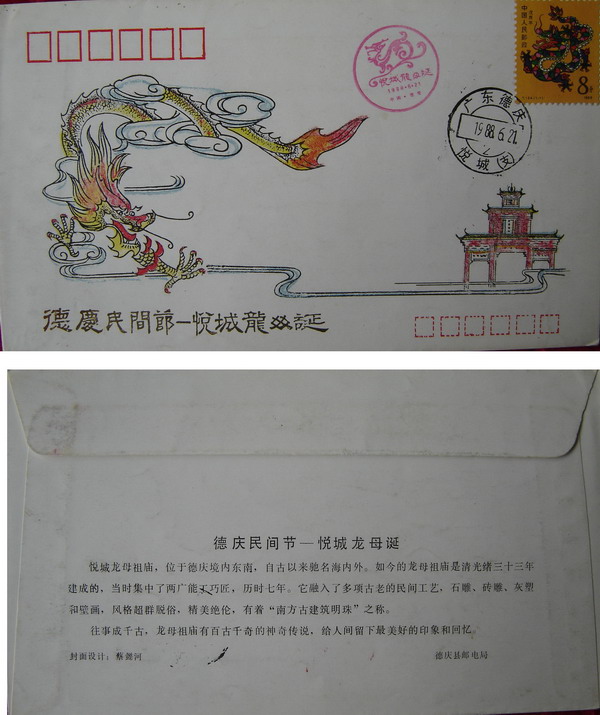 中国人民邮政
8分
悦城龍母诞
1988·6·21
广东德庆
1988.6.21
悦城(支)
德慶民間節—悦城龍母誕
德庆民间节—悦城龙母诞
悦城龙母祖庙，位于德庆境内东南，自古以来驰名海内外。如今的龙母祖庙是清光绪三十三年
建成的，当时集中了两广能工巧匠，历时七年。它融入了多项古老的民间工艺，石雕、砖雕、灰塑
和壁画，风格超群脱俗，精美绝伦，有着“南方古建筑明珠”之称。
往事成千古，龙母祖庙有百古千奇的神奇传说，给人间留下最美好的印象和回忆。
封面设计：蔡疆河
德庆县邮电局